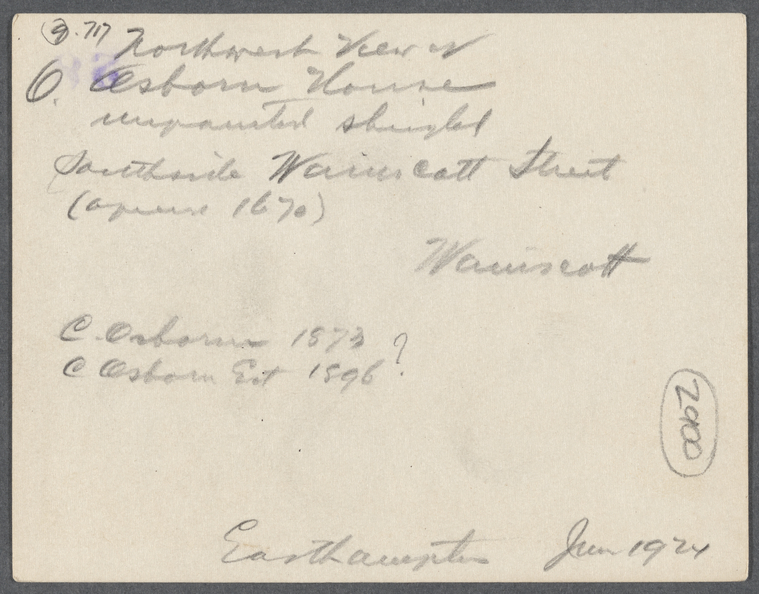 3.717 Northwest View of
O. Osborn House
unpainted shingled
Southside Wainscott Street
( 1670)
Wainscott
C. Osborn 1873 ?
C Osborn Est 1896
2900
Easthampton Jun 1924